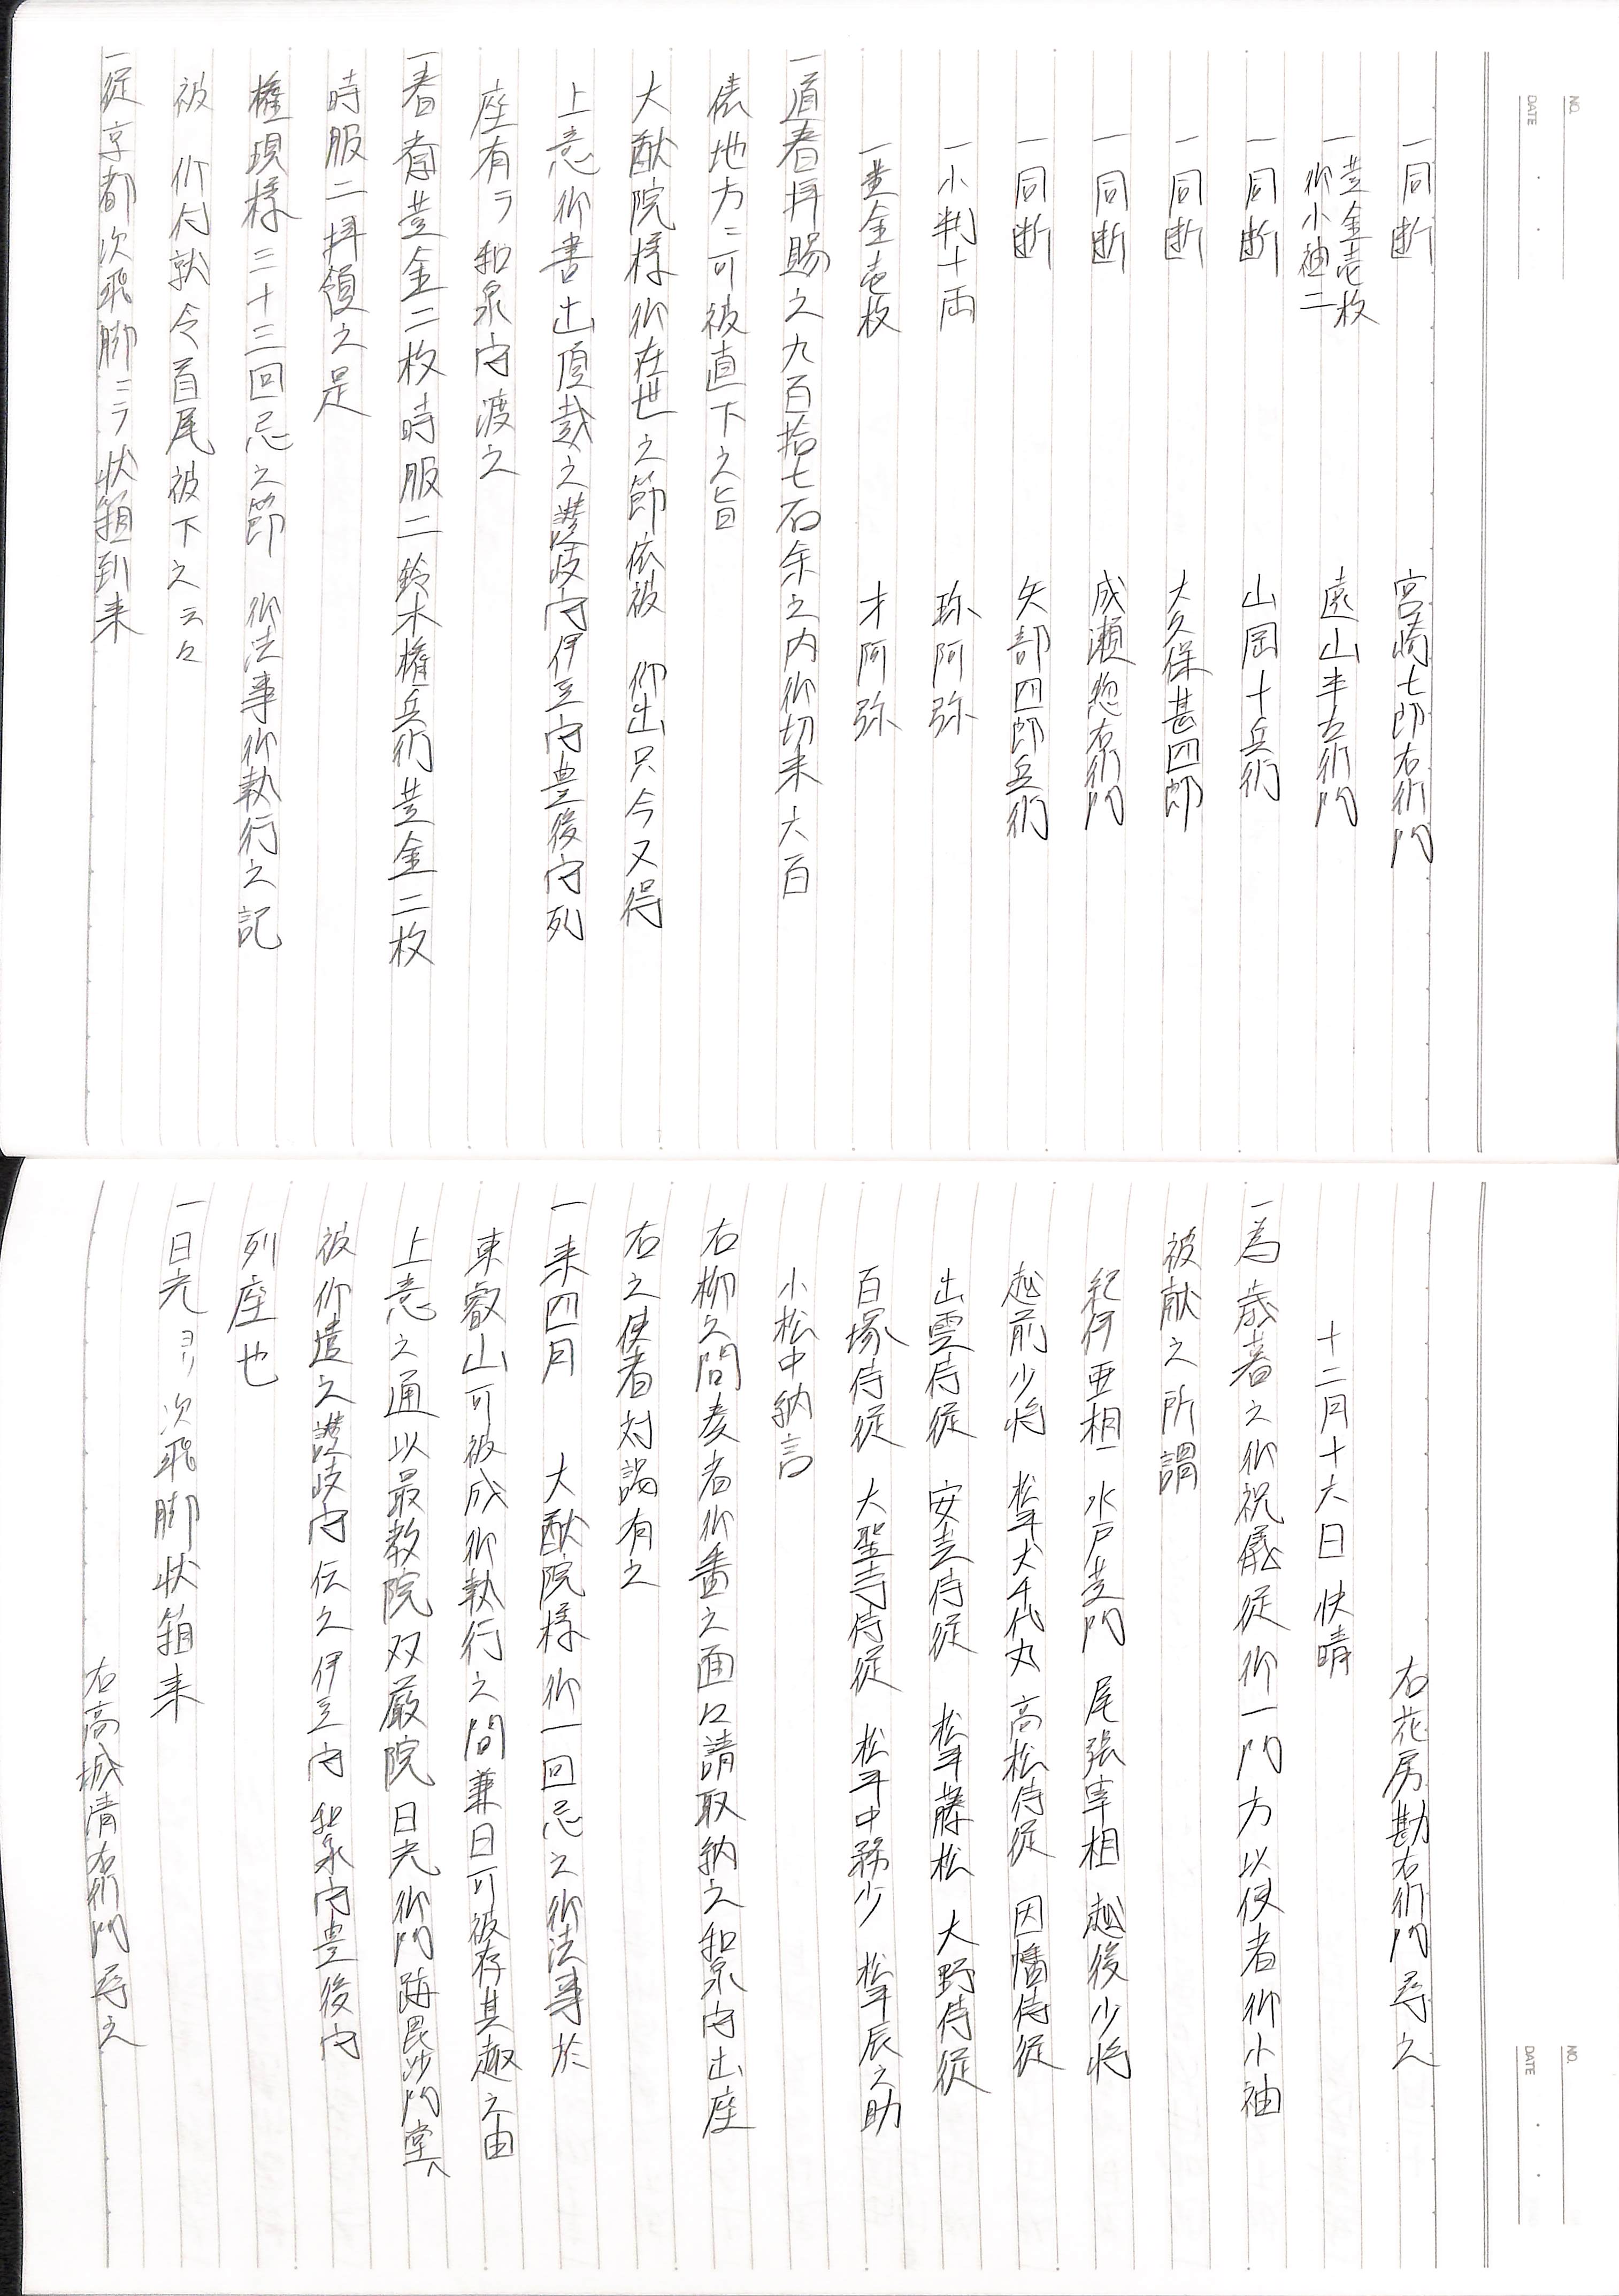 NO.
DATE
一同断 宮崎七郎右衛門
一黄金壱枚 御小袖二 遠山半左衛門
一同断 山岡十兵衛
一同断 大久保甚四郎
一同断 成瀬惣右衛門
一同断 矢部四郎兵衛
一小判十両 珎阿弥
一黄金壱枚 才阿弥
一道春拝賜之九百拾七石余之内御切米六百
俵地方ニ可被直下之旨
大猷院様御在世之節依被 仰出只今又得
上意御書出頂戴之讃岐守伊豆守豊後守列
座有テ和泉守渡之
一春斎黄金二枚時服二鈴木権兵衛黄金二枚
時服二拝領之是
権現様三十三回忌之節 御法事御執行之記
被 仰付就令首尾被下之云々
一従京都次飛脚ニテ状箱到来
NO.
DATE
右花房勘右衛門尋之
十二月十六日 快晴
一為歳暮之御祝儀従御一門方以使者御小袖
被献之所謂
紀伊亜相 水戸黄門 尾張宰相 越後少将
越前少将 松平犬千代丸 高松侍従 因幡侍従
出雲侍従 安芸侍従 松平藤松 大野侍従
百塚侍従 大聖寺侍従 松平中務少 松平辰之助
小松中納言
右柳之間奏者御番之面々請取納之和泉守出座
右之使者対謁有之
一来四月 大猷院様御一回忌之御法事於
東叡山可被成御執行之間兼日可被存其趣之由
上意之通以最教院双厳院日光御門跡毘沙門堂へ
被仰遣之讃岐守伝之伊豆守和泉守豊後守
列座也
一日光ヨリ次飛脚状箱来
右高城清右衛門尋之